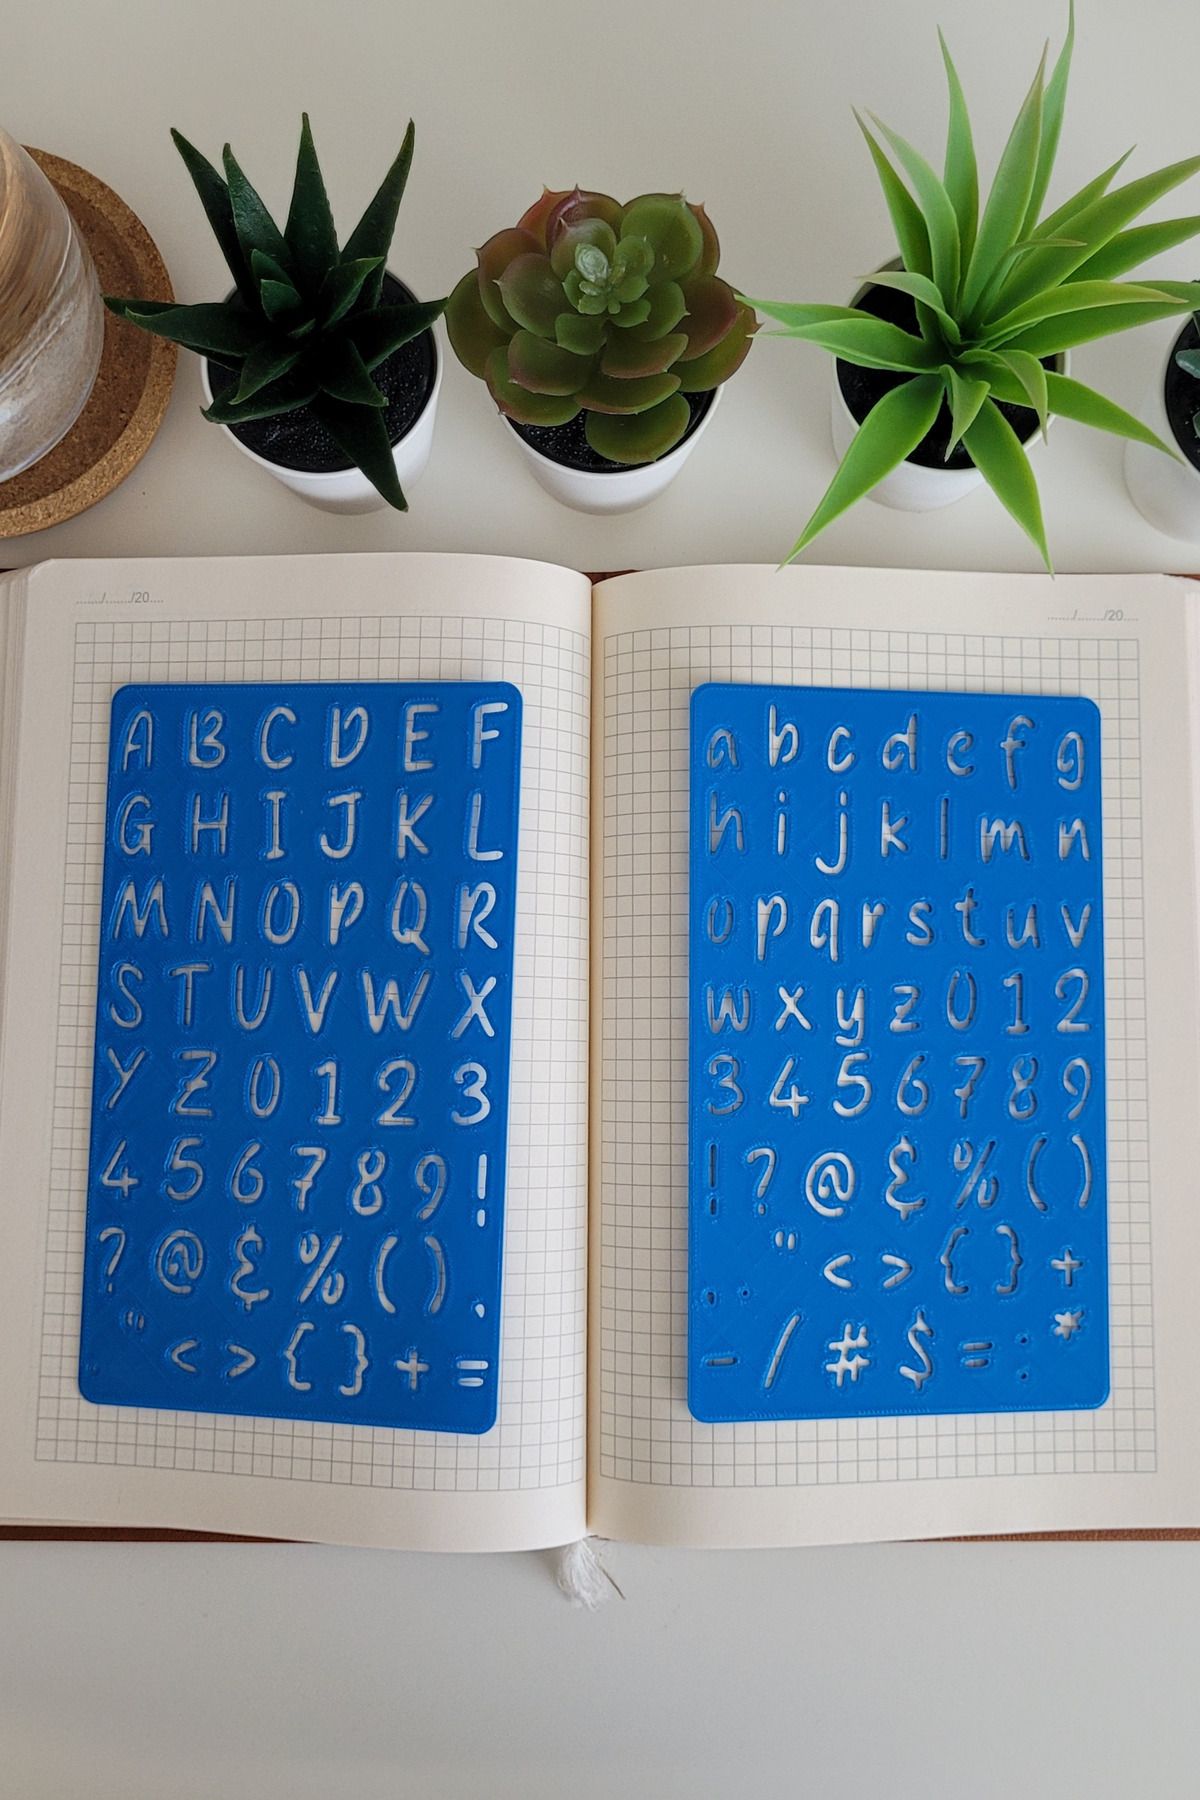 ......./......./20....
A B C D E F
G H I J K L
M N O P Q R
S T U V W X
Y Z 0 1 2 3
4 5 6 7 8 9 !
? @ & % ( ) ,
. " < > { } + =
......./......./20....
a b c d e f g
h i j k l m n
o p q r s t u v
w x y z 0 1 2
3 4 5 6 7 8 9
! ? @ & % ( )
, . " < > { } +
- / # $ = : *